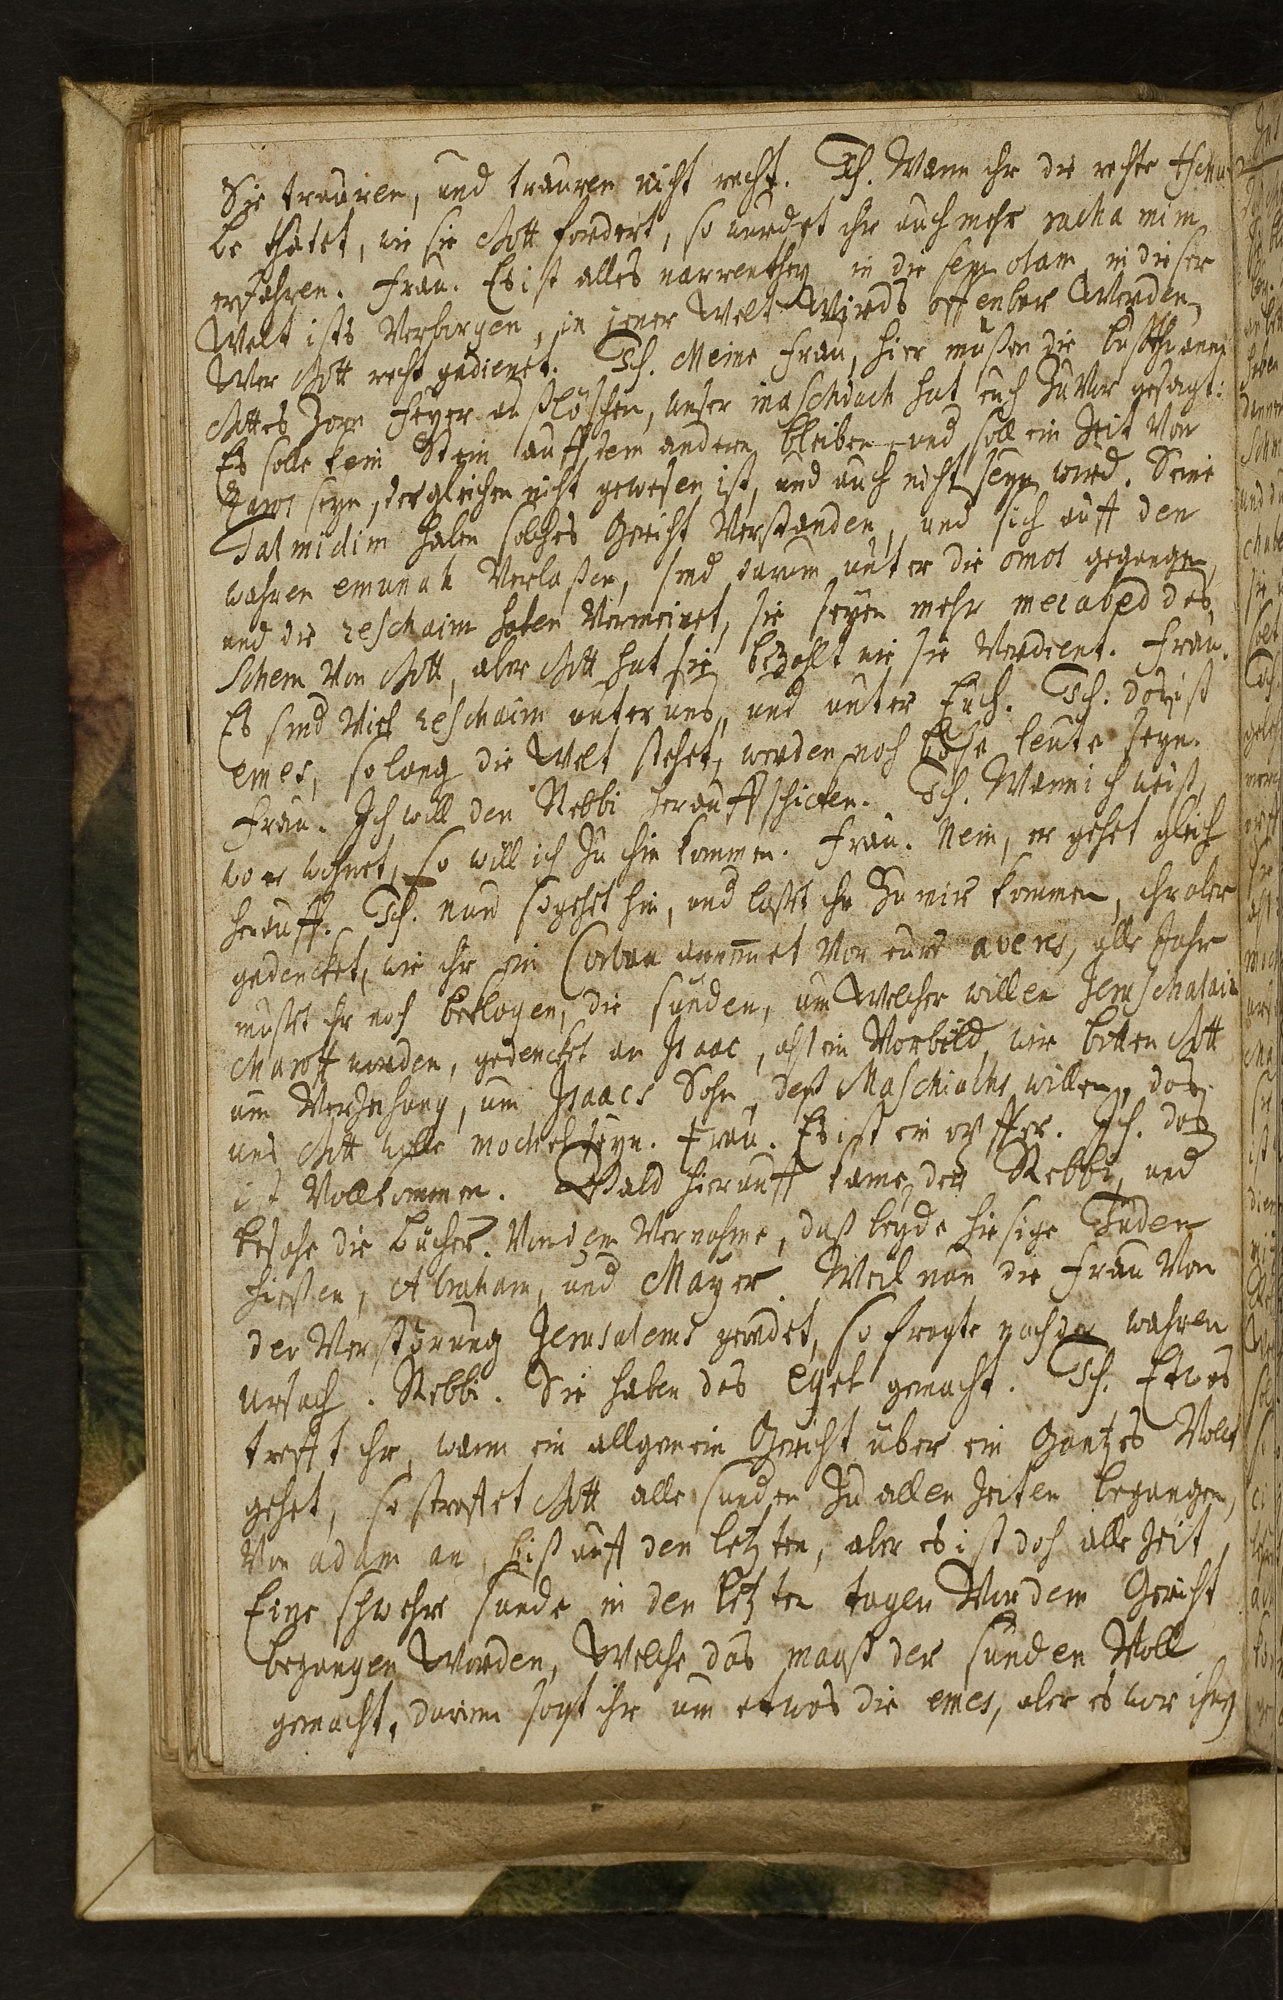 Sie trauren, und trauren nicht recht. Ich. Wann ihr die rechte tschu-
be thätet, wie sie Gott fordert, so wurdet ihr auch mehr rachamim
erfahren. Frau. Es ist alles narrenthey in die sem olam, in dieser
Welt ists Verborgen, in jener Welt Wirds offenbar Werden,
Wer Gott recht gedienet. Ich. Meine Frau, hier mußen die
Gottes Zorn Feuer außlöschen, unser maschiach hat euch zuvor gesagt:
Es solle kein Stein auff dem andern bleiben und soll ein Zeit Von
Zarot seyn, dergleichen nicht gewesen ist, und auch nicht seyn wird. Seine
Talmidim haben solches Gericht Verstanden, und sich auff den
wahren emunah Verlaßen, sind darum unter die omot gegangen,
und die reschaim haben Vermeinet, sie seyen mehr mecabed des
Schem Von Gott, aber Gott hat sie bezahlt wie sie Verdient. Frau.
Es sind Viel reschaim unter uns, und unter Euch. Ich. das ist
emes, so lang die Welt stehet, werden noch böse leute seyn.
Frau. Ich will den Rebbi herauff schicken. Ich. Wann ich weiß,
wo er wohnet, so will ich zu ihm kommen. Frau. Nein, er gehet gleich
herauff. Ich. nun so gehet hin, und laßet ihn zu mir kommen, ihr aber
gedencket, wie ihr ein Corban annemet Von eure averes, alle Jahr
mußet ihr noch beklagen, die sünden, um Welcher willen Jeruschalaim
charoff worden, gedencket an Isaac, alß ein Vorbild, wir bitten Gott
um Verzeihung, um Isaacs Sohn, deß Maschiachs willen, daß
uns Gott wolle mochel seyn. Frau. Es ist ein opffer. Ich. das
ist Vollkommen. Bald hierauff kame der Rebbi, und
besahe die bücher. Von dem Vernahme, daß beyde hiesige Juden
hießen, Abraham, und Mayer. Weil nun die Frau Von
der Verstörung Jerusalems geredet, so fragte nach der wahren
ursach. Rebbi. Sie haben das egel gemacht. Ich. Etwas
trefft ihr, wann ein allgemein Gericht über ein Gantzes Volck
gehet, so straffet Gott alle sünden zu allen Zeiten begangen,
Von adam an, biß auff den letzten, aber es ist doch alle Zeit
Eine schwehre sünde in den letzten tagen Vor dem Gericht
begangen Worden, Welche das maaß der sünden Voll
gemacht, darum sagt ihr um etwas die emes, aber es war ihnen